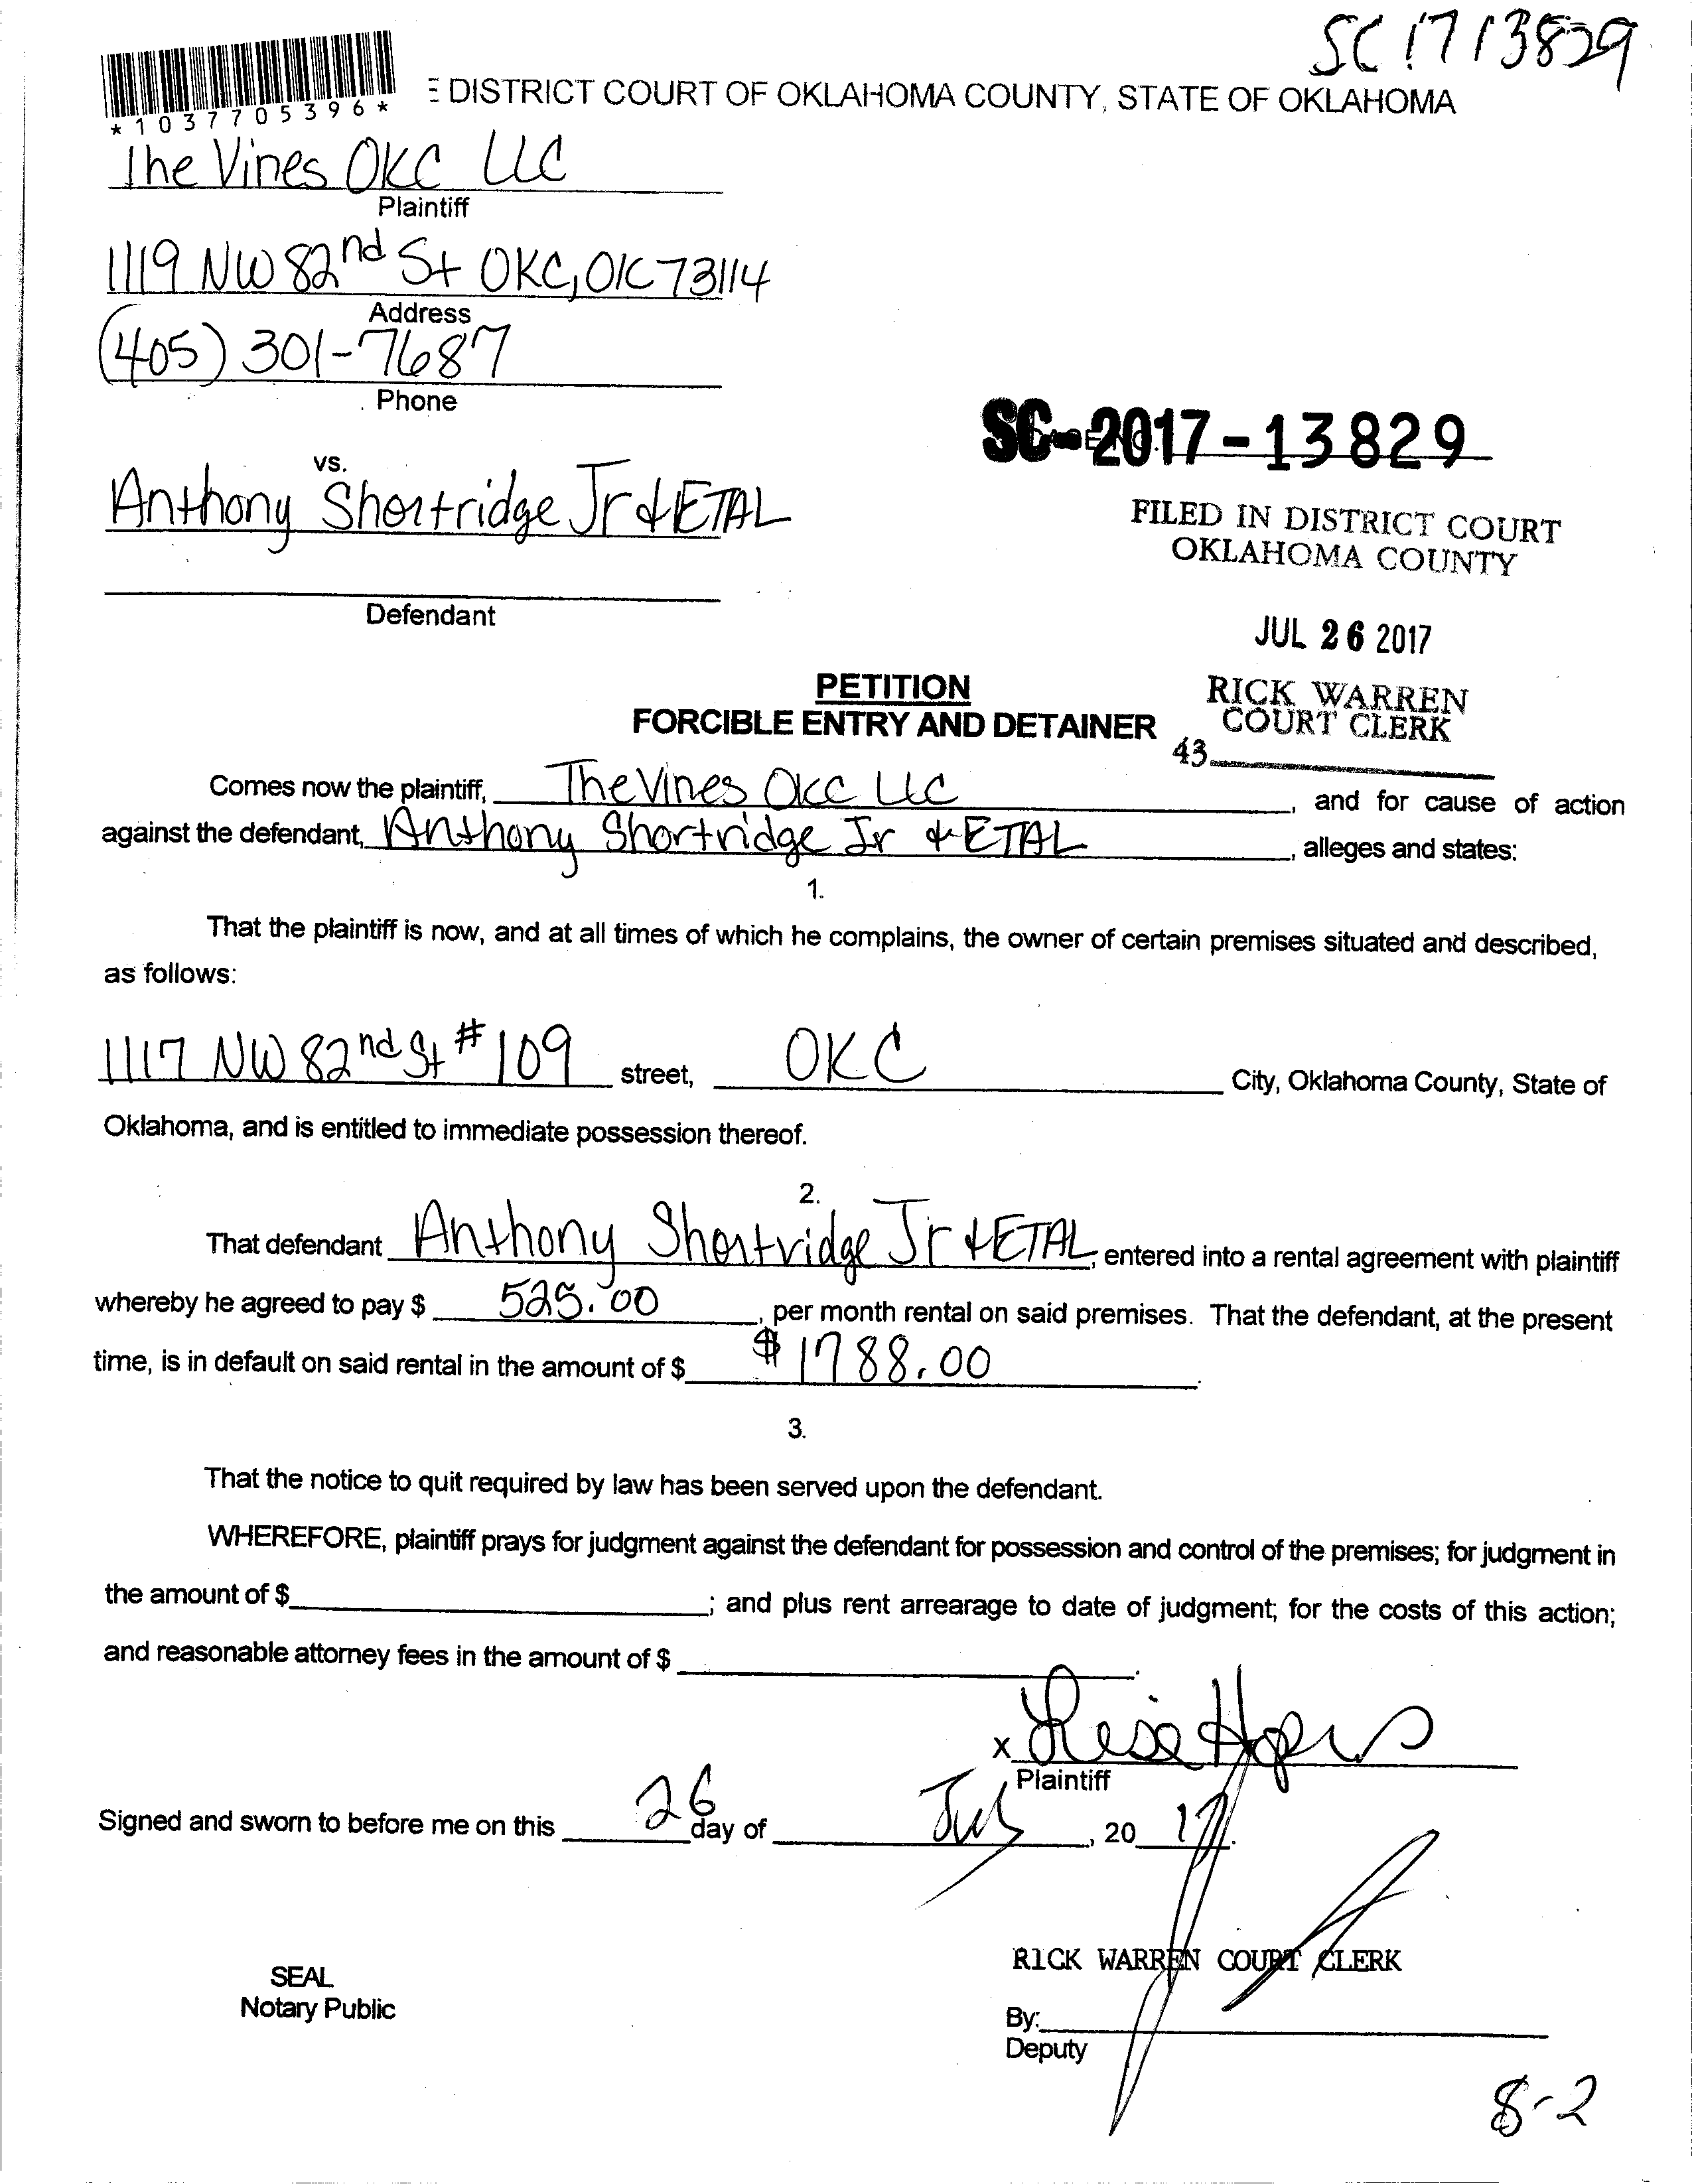 SC 1713829
*1037705396*
E DISTRICT COURT OF OKLAHOMA COUNTY, STATE OF OKLAHOMA
The Vines OKC LLC
Plaintiff
1119 NW 82nd St OKC, OK 73114
Address
(405) 301-7687
Phone
SC-2017-13829
vs.
Anthony Shortridge Jr & ETAL
FILED IN DISTRICT COURT
OKLAHOMA COUNTY
Defendant
JUL 26 2017
PETITION
FORCIBLE ENTRY AND DETAINER
RICK WARREN
COURT CLERK
43
Comes now the plaintiff, The Vines OKC LLC, and for cause of action
against the defendant, Anthony Shortridge Jr & ETAL, alleges and states:
1.
That the plaintiff is now, and at all times of which he complains, the owner of certain premises situated and described,
as follows:
1117 NW 82nd St #109 street, OKC City, Oklahoma County, State of
Oklahoma, and is entitled to immediate possession thereof.
2.
That defendant Anthony Shortridge Jr & ETAL, entered into a rental agreement with plaintiff
whereby he agreed to pay $ 525.00, per month rental on said premises. That the defendant, at the present
time, is in default on said rental in the amount of $ $1788.00.
3.
That the notice to quit required by law has been served upon the defendant.
WHEREFORE, plaintiff prays for judgment against the defendant for possession and control of the premises; for judgment in
the amount of $ ; and plus rent arrearage to date of judgment; for the costs of this action;
and reasonable attorney fees in the amount of $ .
X
Plaintiff
Signed and sworn to before me on this 26 day of July, 2017.
RICK WARREN COURT CLERK
SEAL
Notary Public
By:
Deputy
8-2